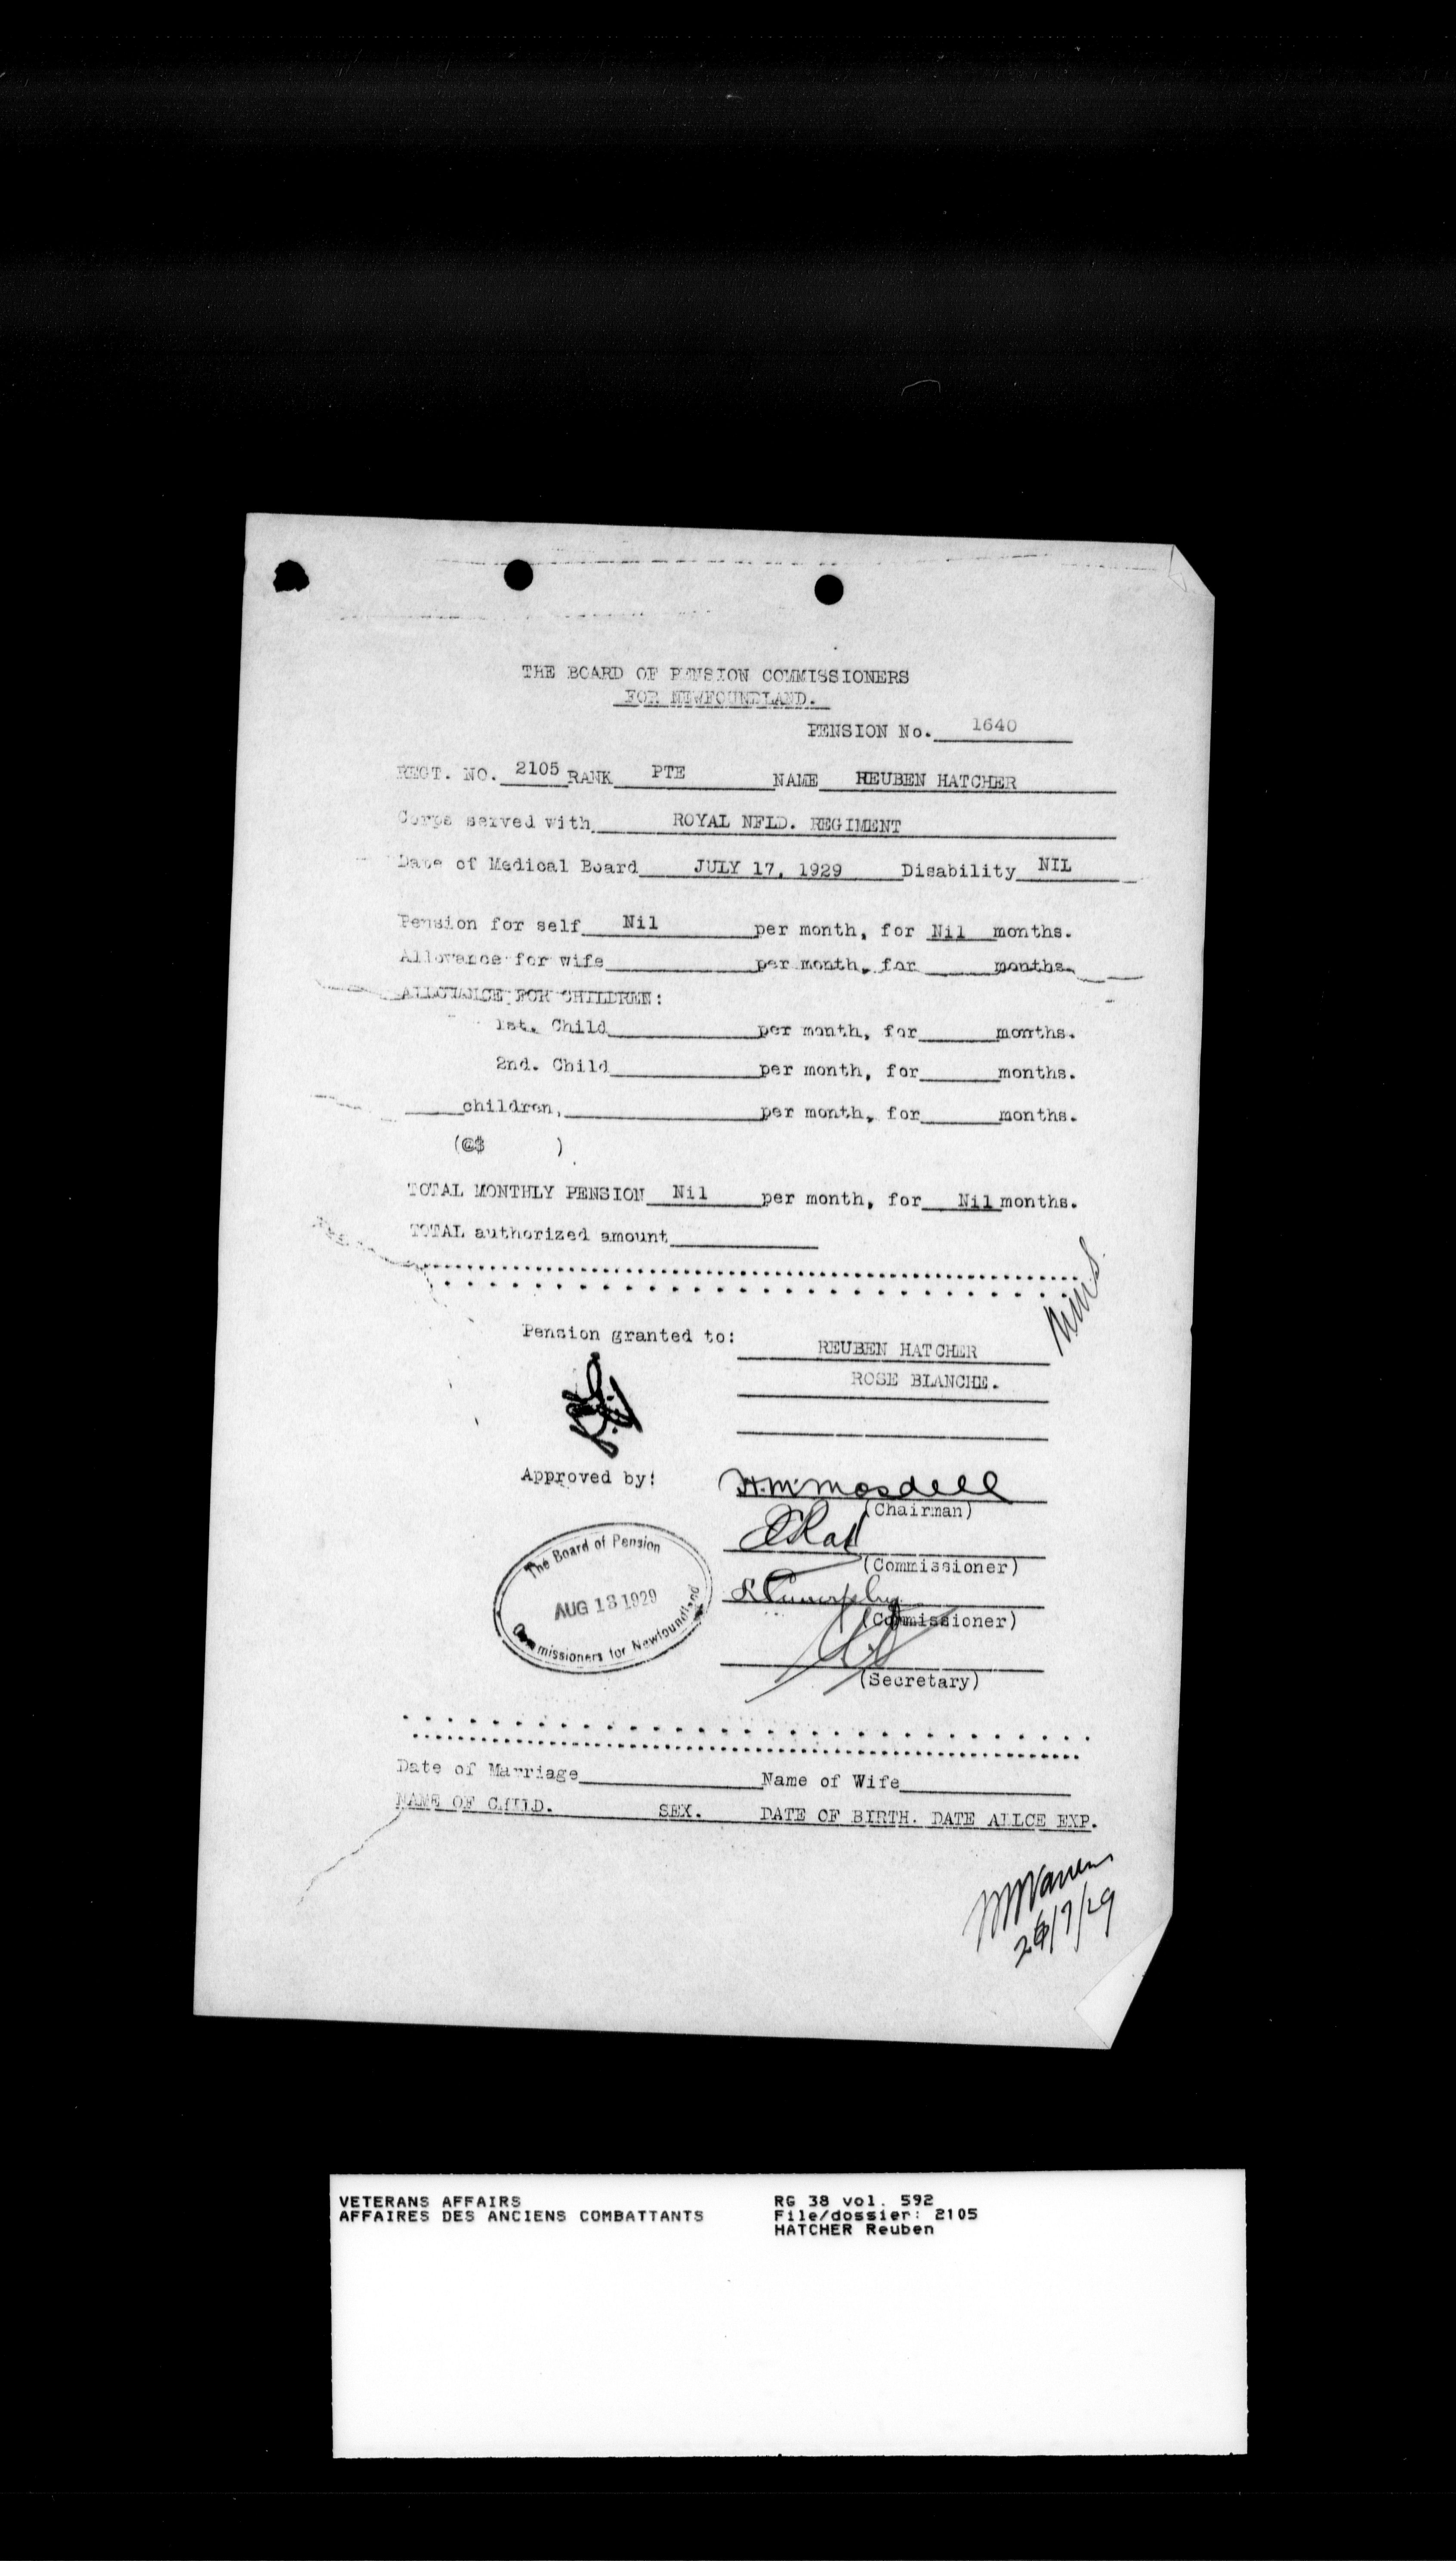 THE BOARD OF PENSION COMMISSIONERS
FOR NEWFOUNDLAND.
PENSION No. 1640
REGT. NO. 2105 RANK PTE NAME REUBEN HATCHER
Corps served with ROYAL NFLD. REGIMENT
Date of Medical Board JULY 17, 1929 Disability NIL
Pension for self Nil per month, for Nil months.
Allowance for wife per month, for months.
ALLOWANCE FOR CHILDREN:
1st. Child per month, for months.
2nd. Child per month, for months.
children, per month, for months.
(@$ )
TOTAL MONTHLY PENSION Nil per month, for Nil months.
TOTAL authorized amount
Pension granted to: REUBEN HATCHER
ROSE BLANCHE.
Approved by: H.M. Mosdell
(Chairman)
(Commissioner)
(Commissioner)
(Secretary)
The Board of Pension
AUG 13 1929
Commissioners for Newfoundland
Date of Marriage Name of Wife
NAME OF CHILD. SEX. DATE OF BIRTH. DATE ALLCE EXP.
26/7/29
VETERANS AFFAIRS RG 38 vol. 592
AFFAIRES DES ANCIENS COMBATTANTS File/dossier: 2105
HATCHER Reuben